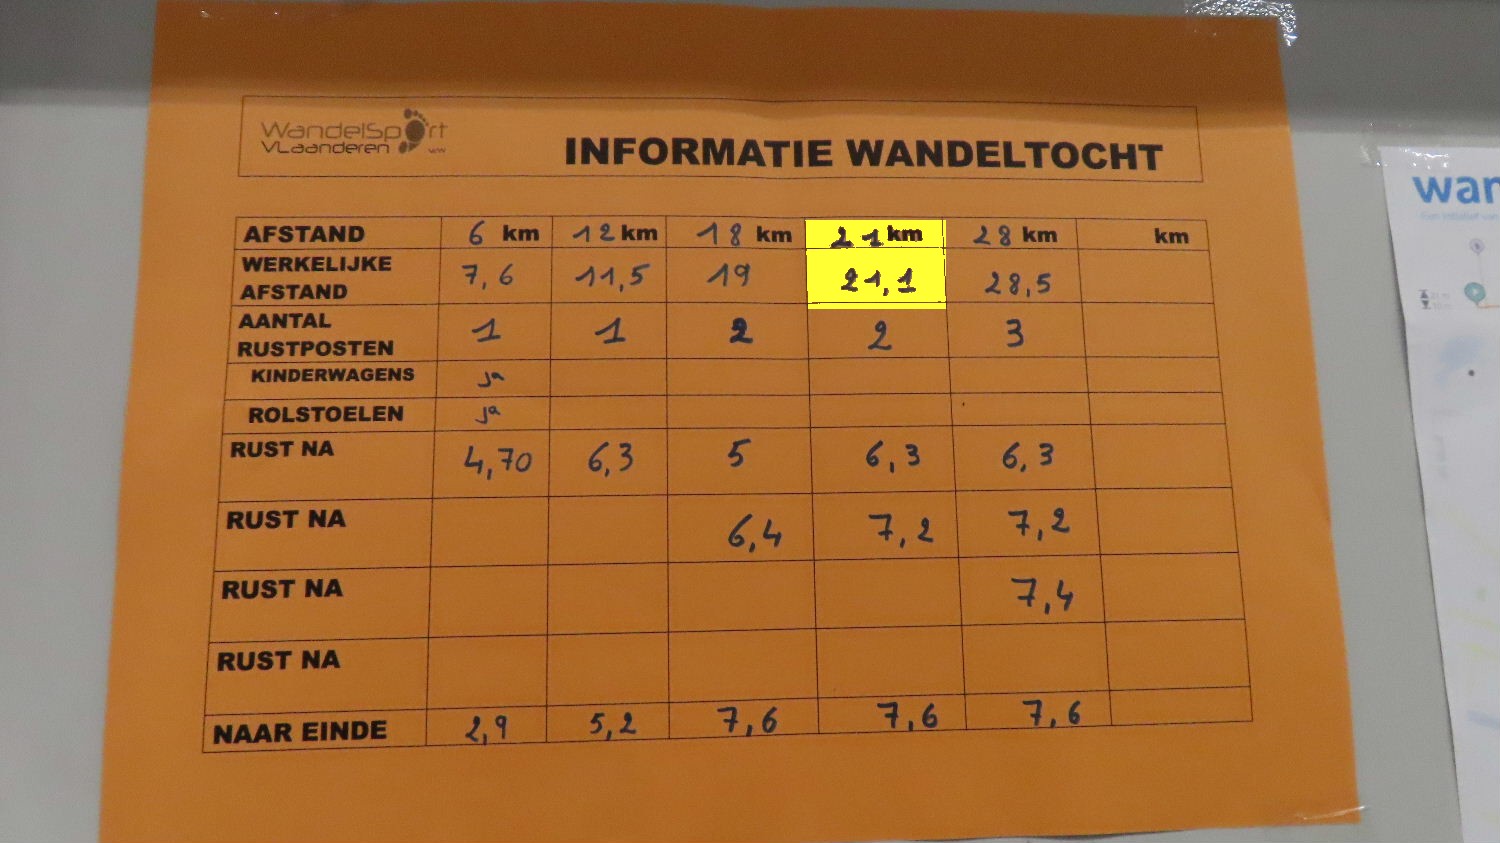 WandelSport
VLaanderen vzw
INFORMATIE WANDELTOCHT
AFSTAND 6 km 12 km 18 km 21 km 28 km km
WERKELIJKE
AFSTAND 7,6 11,5 19 21,1 28,5
AANTAL
RUSTPOSTEN 1 1 2 2 3
KINDERWAGENS ja
ROLSTOELEN ja
RUST NA 4,70 6,3 5 6,3 6,3
RUST NA 6,4 7,2 7,2
RUST NA 7,4
RUST NA
NAAR EINDE 2,9 5,2 7,6 7,6 7,6
wan
Een initiatief van